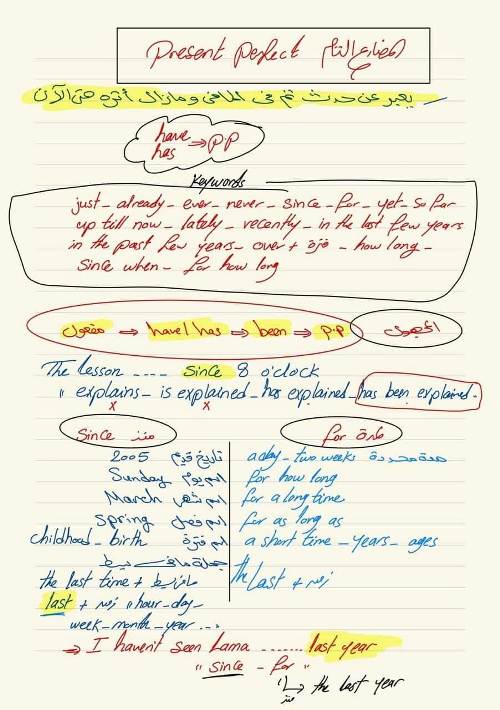 Present Perfect المضارع التام
يعبر عن حدث تم فى الماضى ومازال أثره حتى الآن
have
has → p.p
Keywords
just - already - ever - never - since - for - yet - so far
up till now - lately - recently - in the last few years
in the past few years - over + فترة - how long -
since when - for how long
مفعول → have/has → been → p.p المجهول
The lesson .... since 8 o'clock
" explains - is explained - has explained - has been explained.
x x
since منذ
2005 تاريخ قديم
Sunday اسم يوم
March اسم شهر
spring اسم فصل
childhood - birth اسم فترة
جملة ماضى بسيط
the last time + ماضى بسيط
last + زمن "hour - day -
week - month - year ...
for لمدة
a day - two weeks مدة محددة
for how long
for a long time
for as long as
a short time - years - ages
the last + زمن
→ I haven't seen Lama ....... last year
" since - for "
→ the last year